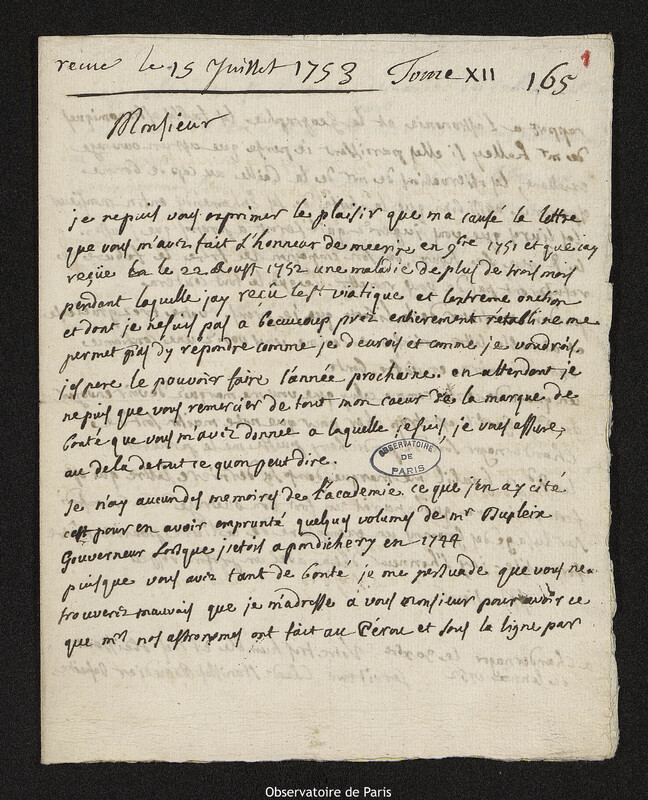 reçue le 15 Juillet 1753 Tome XII 165
1
Monsieur
je ne puis vous exprimer le plaisir que ma causé la lettre
que vous m'avez fait l'honneur de mecrire en 9bre 1751 et que jay
reçüe le 22 Aoust 1752 une maladie de plus de trois mois
pendant laquelle jay reçû le st viatique et lextreme onction
et dont je ne suis pas a beaucoup prez entierement rétabli ne me
permet pas d'y répondre comme je devrois et comme je voudrois.
jespere le pouvoir faire l'année prochaine. en attendant je
ne puis que vous remercier de tout mon coeur de la marque de
bonté que vous m'avez donnée a laquelle je suis, je vous assure,
au dela de tout ce quon peut dire.
OBSERVATOIRE
DE
PARIS
Je n'ay aucun des memoires de l'academie ce que jen ay cité
cest pour en avoir emprunté quelques volumes de mr Dupleix
Gouverneur lorsque jetois a pondichery en 1744
puisque vous avez tant de bonté je me persuade que vous ne
trouverez mauvais que je m'adresse a vous monsieur pour avoir ce
que mrs nos astronomes ont fait au Pérou et sous la ligne par
Observatoire de Paris